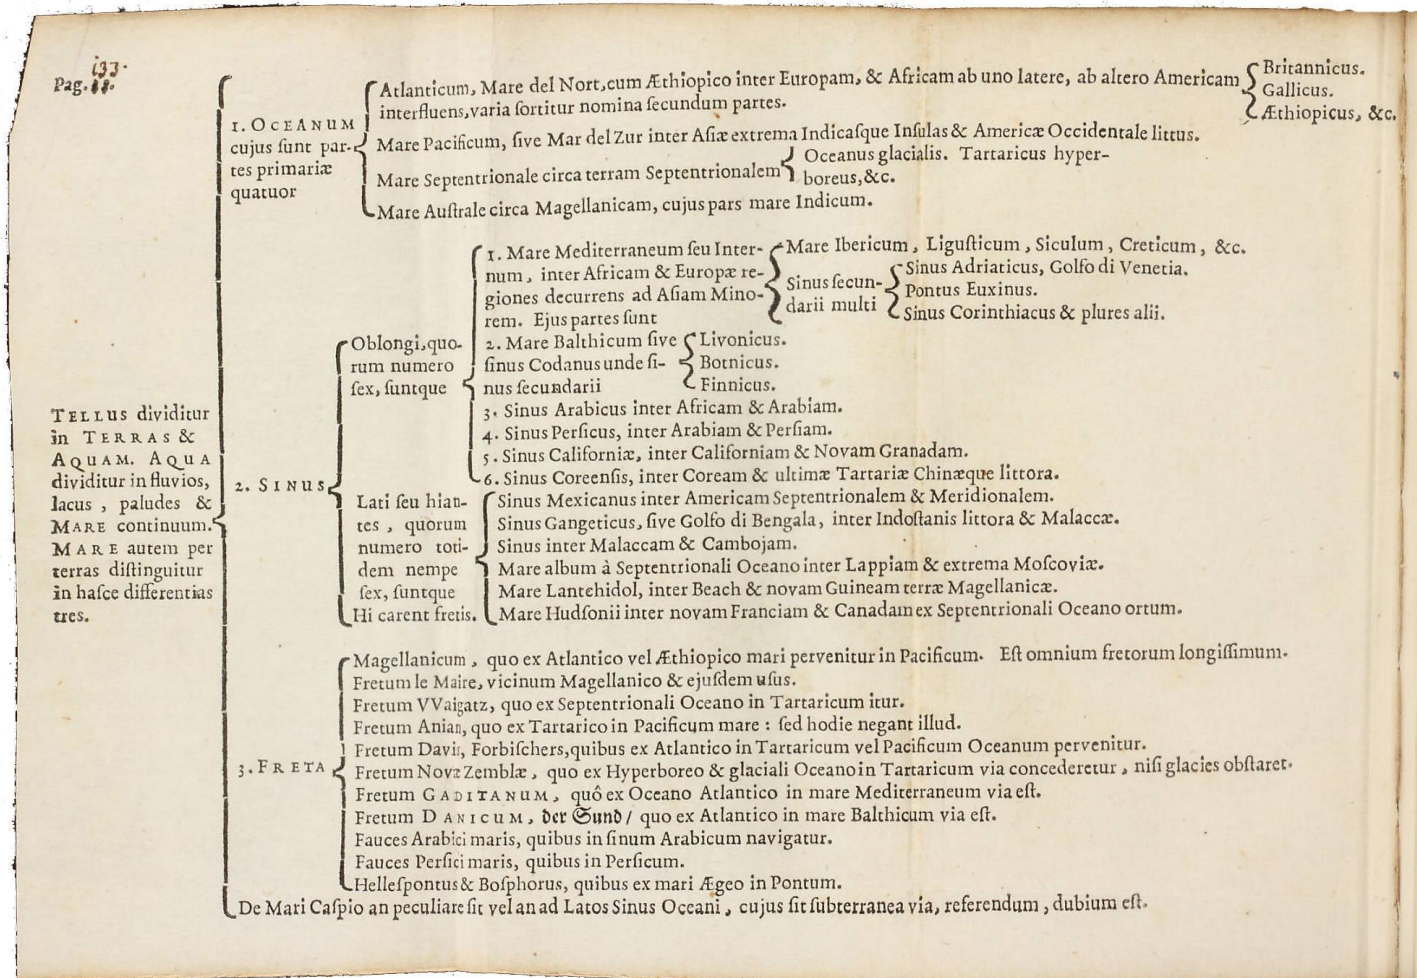 133.
Pag. 11.
TELLUS dividitur
in TERRAS &
AQUAM. AQUA
dividitur in fluvios,
lacus, paludes &
MARE continuum.
MARE autem per
terras diſtinguitur
in haſce differentias
tres.
1. OCEANUM
cujus ſunt par-
tes primariæ
quatuor
Atlanticum, Mare del Nort, cum Æthiopico inter Europam, & Africam ab uno latere, ab altero Americam
interfluens, varia ſortitur nomina ſecundum partes.
Britannicus.
Gallicus.
Æthiopicus, &c.
Mare Pacificum, ſive Mar del Zur inter Aſiæ extrema Indicaſque Inſulas & Americæ Occidentale littus.
Mare Septentrionale circa terram Septentrionalem
Oceanus glacialis. Tartaricus hyper-
boreus, &c.
Mare Auſtrale circa Magellanicam, cujus pars mare Indicum.
2. SINUS
Oblongi, quo-
rum numero
ſex, ſuntque
1. Mare Mediterraneum ſeu Inter-
num, inter Africam & Europæ re-
giones decurrens ad Aſiam Mino-
rem. Ejus partes ſunt
Mare Ibericum, Liguſticum, Siculum, Creticum, &c.
Sinus ſecun-
darii multi
Sinus Adriaticus, Golfo di Venetia.
Pontus Euxinus.
Sinus Corinthiacus & plures alii.
2. Mare Balthicum ſive
ſinus Codanus unde ſi-
nus ſecundarii
Livonicus.
Botnicus.
Finnicus.
3. Sinus Arabicus inter Africam & Arabiam.
4. Sinus Perſicus, inter Arabiam & Perſiam.
5. Sinus Californiæ, inter Californiam & Novam Granadam.
6. Sinus Coreenſis, inter Coream & ultimæ Tartariæ Chinæque littora.
Lati ſeu hian-
tes, quorum
numero toti-
dem nempe
ſex, ſuntque
Hi carent fretis.
Sinus Mexicanus inter Americam Septentrionalem & Meridionalem.
Sinus Gangeticus, ſive Golfo di Bengala, inter Indoſtanis littora & Malaccæ.
Sinus inter Malaccam & Cambojam.
Mare album à Septentrionali Oceano inter Lappiam & extrema Moſcoviæ.
Mare Lantchidol, inter Beach & novam Guineam terræ Magellanicæ.
Mare Hudſonii inter novam Franciam & Canadam ex Septentrionali Oceano ortum.
3. FRETA
Magellanicum, quo ex Atlantico vel Æthiopico mari pervenitur in Pacificum. Eſt omnium fretorum longiſſimum.
Fretum le Maire, vicinum Magellanico & ejuſdem uſus.
Fretum VVaigatz, quo ex Septentrionali Oceano in Tartaricum itur.
Fretum Anian, quo ex Tartarico in Pacificum mare : ſed hodie negant illud.
Fretum Davis, Forbiſchers, quibus ex Atlantico in Tartaricum vel Pacificum Oceanum pervenitur.
Fretum Novæ Zemblæ, quo ex Hyperboreo & glaciali Oceano in Tartaricum via concederetur, niſi glacies obſtaret.
Fretum GADITANUM, quô ex Oceano Atlantico in mare Mediterraneum via eſt.
Fretum DANICUM, der Sund / quo ex Atlantico in mare Balthicum via eſt.
Fauces Arabici maris, quibus in ſinum Arabicum navigatur.
Fauces Perſici maris, quibus in Perſicum.
Helleſpontus & Boſphorus, quibus ex mari Ægeo in Pontum.
De Mari Caſpio an peculiare ſit vel an ad Latos Sinus Oceani, cujus ſit ſubterranea via, referendum, dubium eſt.